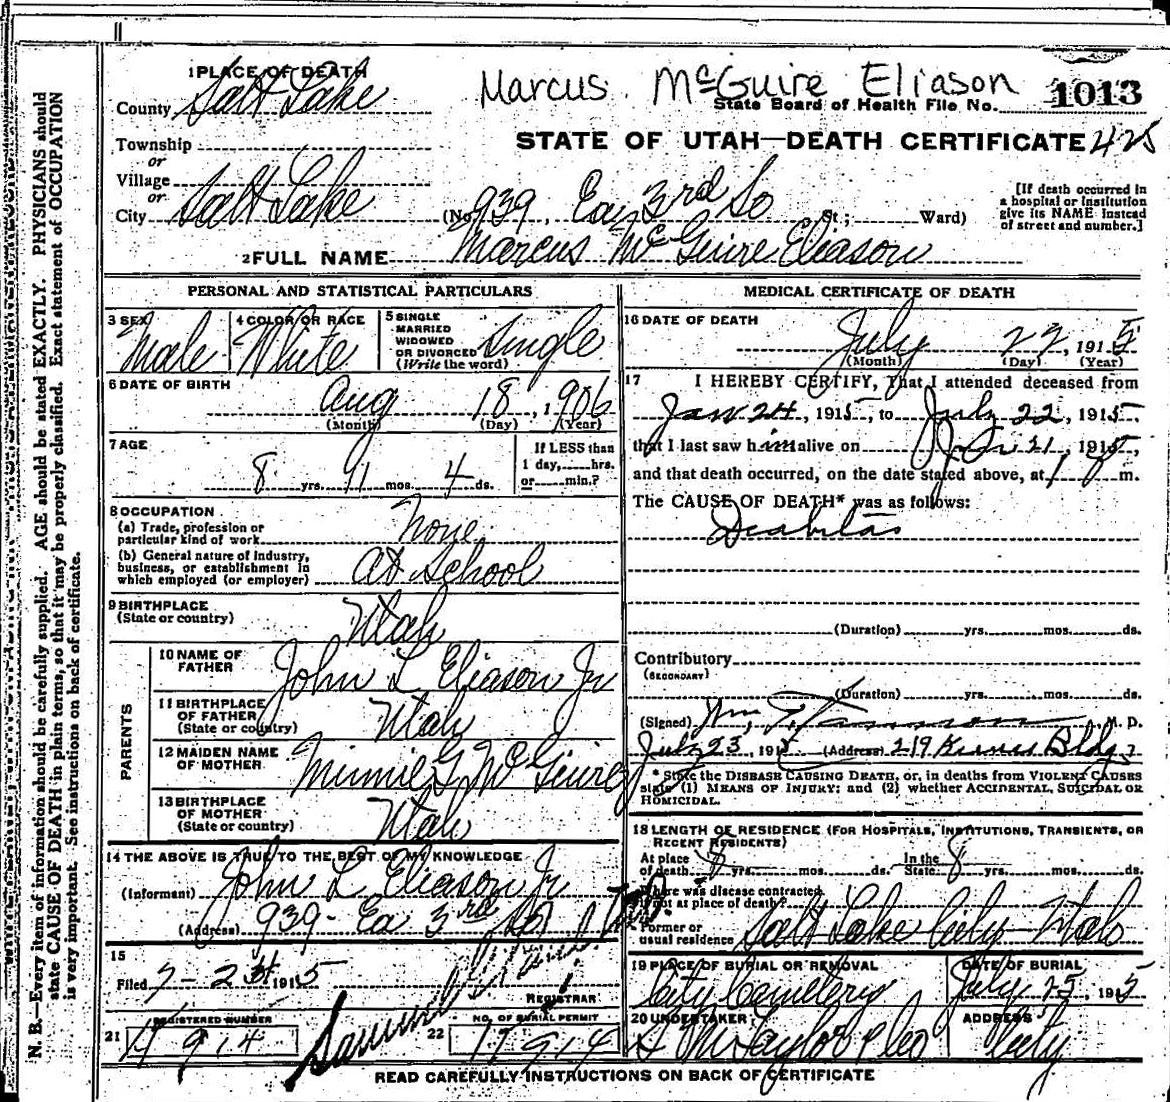 Marcus McGuire Eliason
1 PLACE OF DEATH
County Salt Lake
State Board of Health File No. 1013
Township
or
STATE OF UTAH—DEATH CERTIFICATE 425
Village
or
City Salt Lake (No. 939, Ea 3rd So St.; Ward)
[If death occurred in
a hospital or institution
give its NAME instead
of street and number.]
2 FULL NAME Marcus McGuire Eliason
PERSONAL AND STATISTICAL PARTICULARS
3 SEX Male
4 COLOR OR RACE White
5 SINGLE
MARRIED
WIDOWED
OR DIVORCED
(Write the word) Single
6 DATE OF BIRTH
Aug 18, 1906
(Month) (Day) (Year)
7 AGE
8 yrs. 11 mos. 4 ds.
If LESS than
1 day, hrs.
or min.?
8 OCCUPATION
(a) Trade, profession or
particular kind of work None
(b) General nature of industry,
business, or establishment in
which employed (or employer) At School
9 BIRTHPLACE
(State or country) Utah
PARENTS
10 NAME OF
FATHER John L Eliason Jr
11 BIRTHPLACE
OF FATHER
(State or country) Utah
12 MAIDEN NAME
OF MOTHER Minnie G McGuire
13 BIRTHPLACE
OF MOTHER
(State or country) Utah
14 THE ABOVE IS TRUE TO THE BEST OF MY KNOWLEDGE
(Informant) John L Eliason Jr
(Address) 939 - Ea 3rd So
15
Filed 7-23 1915
REGISTRAR
21 REGISTERED NUMBER
914
22 NO. OF BURIAL PERMIT
914
MEDICAL CERTIFICATE OF DEATH
16 DATE OF DEATH
July 22, 1915
(Month) (Day) (Year)
17 I HEREBY CERTIFY, That I attended deceased from
Jan 24, 1915, to July 22, 1915,
that I last saw him alive on 21, 1915,
and that death occurred, on the date stated above, at 1 m.
The CAUSE OF DEATH* was as follows:
Diabetas
(Duration) yrs. mos. ds.
Contributory
(SECONDARY)
(Duration) yrs. mos. ds.
(Signed) Wm. M. D.
July 23, 1915 (Address) 219 Kearns Bldg
* State the DISEASE CAUSING DEATH, or, in deaths from VIOLENT CAUSES
state (1) MEANS OF INJURY; and (2) whether ACCIDENTAL, SUICIDAL OR
HOMICIDAL.
18 LENGTH OF RESIDENCE (FOR HOSPITALS, INSTITUTIONS, TRANSIENTS, OR
RECENT RESIDENTS)
At place
of death 8 yrs. mos. ds. In the
State 8 yrs. mos. ds.
Where was disease contracted,
if not at place of death?
Former or
usual residence Salt Lake City Utah
19 PLACE OF BURIAL OR REMOVAL
City Cemetery
DATE OF BURIAL
July 25, 1915
20 UNDERTAKER
S M Taylor & Co
ADDRESS
City
READ CAREFULLY INSTRUCTIONS ON BACK OF CERTIFICATE
N. B.—Every item of information should be carefully supplied. AGE should be stated EXACTLY. PHYSICIANS should
state CAUSE OF DEATH in plain terms, so that it may be properly classified. Exact statement of OCCUPATION
is very important. See instructions on back of certificate.